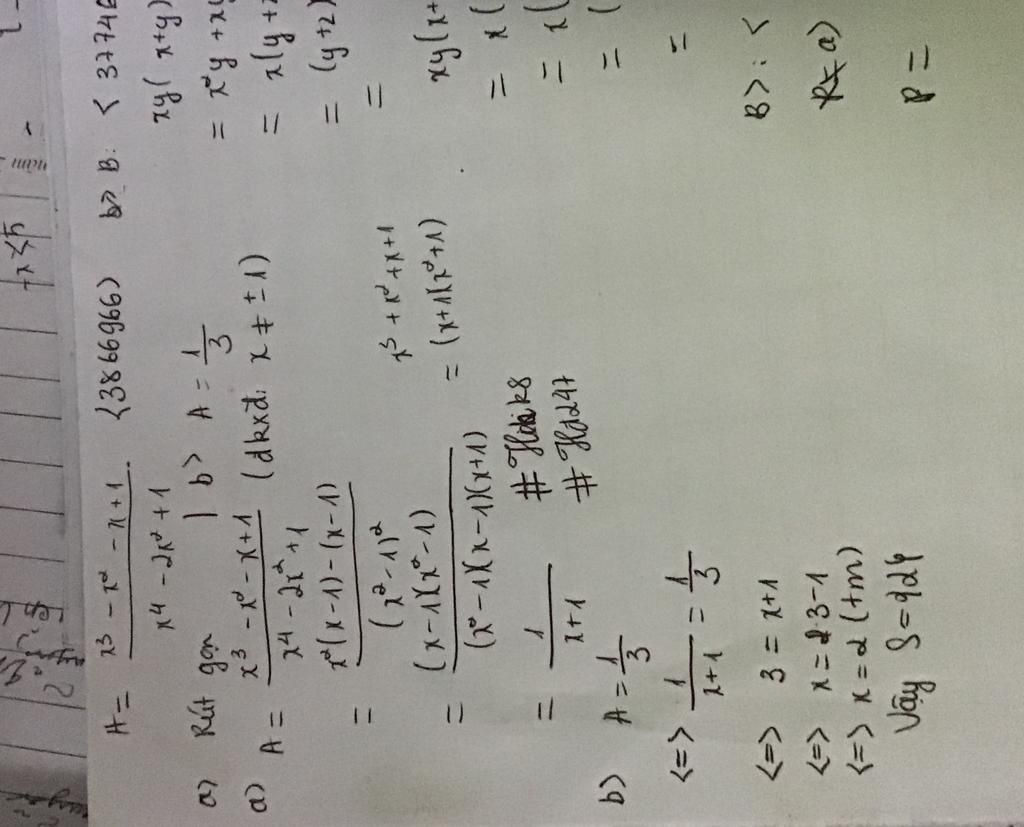 A = x³ - x² - x + 1 / x⁴ - 2x² + 1 {3866966}
a) Rút gọn | b> A = 1/3
a) A = x³ - x² - x + 1 / x⁴ - 2x² + 1 (đkxđ: x ≠ ± 1)
= x²(x - 1) - (x - 1) / (x² - 1)²
x³ + x² + x + 1
= (x - 1)(x² - 1) / (x² - 1)(x - 1)(x + 1)
= (x + 1)(x² + 1)
= 1 / x + 1
# Hđd247
b) A = 1/3
<=> 1 / x + 1 = 1/3
<=> 3 = x + 1
<=> x = 3 - 1
<=> x = 2 (tm)
Vậy S = {2}
b> B: < 37746
xy( x + y)
= x²y + xy
= x(y +
= (y + z)
=
xy(x +
= x(
= x(
= (
=
B> : <
a)
P =